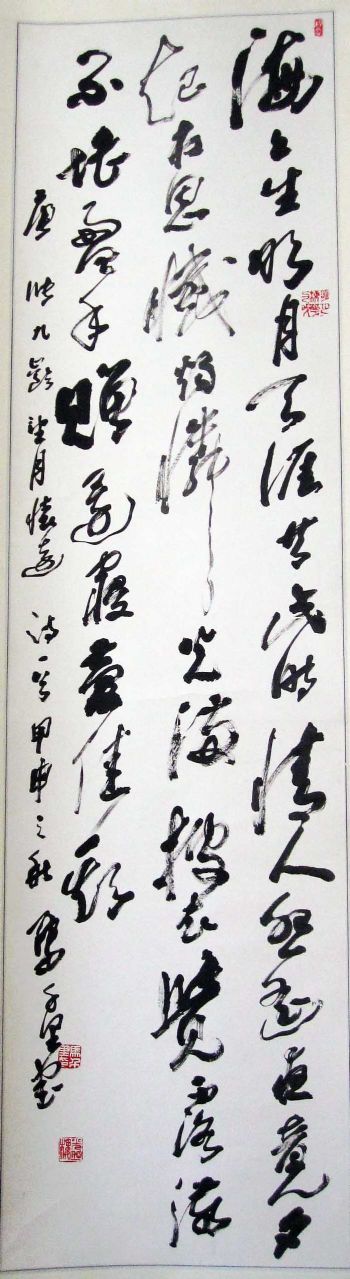 海上生明月天涯共此時情人怨遙夜竟夕
起相思滅燭憐光滿披衣覺露滋
不堪盈手贈還寢夢佳期
唐張九齡望月懷遠詩一首甲申之秋書